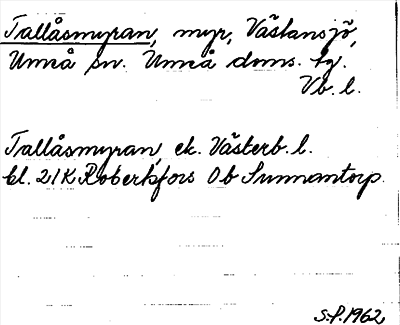 Tallåsmyran, myr, Västansjö,
Umeå sn. Umeå doms. tg.
Vb. l.
Tallåsmyran, ek. Västerb. l.
bl. 21K Robertsfors 0b Sunnantorp.
S.P. 1962